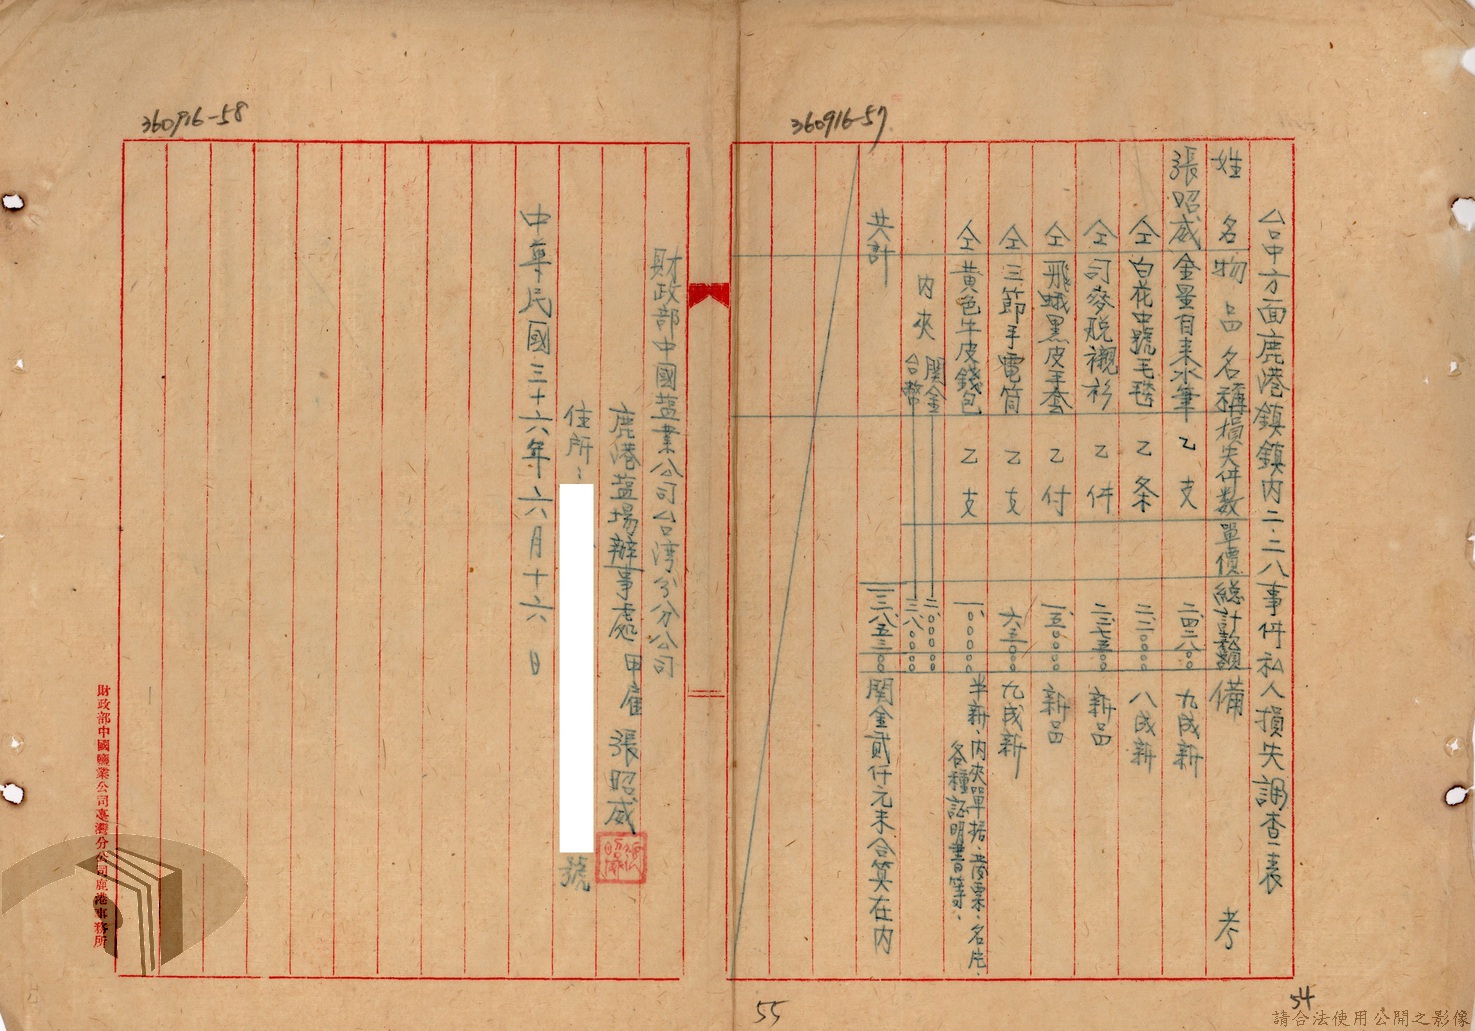 360916-57
台中方面鹿港鎮鎮內二.二八事件私人損失調查表
姓名 物品名稱 損失件数 單價 總計額 備考
張昭威 金星自来水筆 乙支 二四二八〇〇 九成新
仝 白花中號毛毯 乙条 二二〇〇〇〇 八成新
仝 司麥脱襯衫 乙件 二三七五〇〇 新品
仝 飛蛾黑皮手套 乙付 一五〇〇〇〇 新品
仝 三節手電筒 乙支 六五〇〇〇 九成新
仝 黃色牛皮錢包 乙支 一〇〇〇〇〇 半新、內夾單据、發票、名片、各種認明書等、
內夾 関金 二、〇〇〇〇〇
台幣 三、八〇〇〇〇
共計 一三、八五三〇〇 関金貳仟元未合算在內
54
360916-58
財政部中國盐業公司台湾分分公司
鹿港盐場辦事處 甲雇 張昭威
住所： 號
中華民國三十六年六月十六日
財政部中國鹽業公司臺灣分公司鹿港事務所
55
請合法使用公開之影像